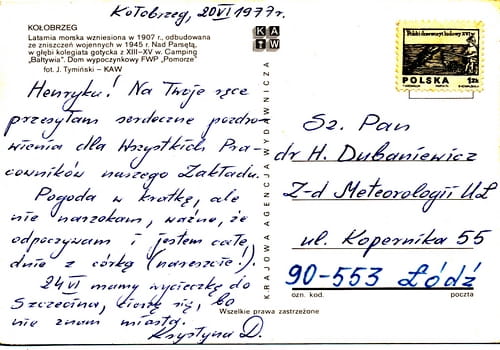 Kołobrzeg, 20 VI 1977 r.
KOŁOBRZEG
Latarnia morska wzniesiona w 1907 r., odbudowana
ze zniszczeń wojennych w 1945 r. Nad Parsętą,
w głębi kolegiata gotycka z XIII–XV w. Camping
„Bałtywia". Dom wypoczynkowy FWP „Pomorze"
fot. J. Tymiński – KAW
KA
TW
Henryku! Na Twoje ręce
przesyłam serdeczne pozdro
wienia dla Wszystkich Pra
cowników naszego Zakładu.
Pogoda w kratkę, ale
nie narzekam, ważne, że
odpoczywam i jestem całe
dnie z córką (nareszcie!).
24 VI mamy wycieczkę do
Szczecina, cieszę się, bo
nie znam miasta.
Krystyna D.
KRAJOWA AGENCJA WYDAWNICZA
POLSKA
1zł
Sz. Pan
dr H. Dubaniewicz
Z-d Meteorologii UŁ
ul. Kopernika 55
90-553 Łódź
ozn. kod.
poczta
Wszelkie prawa zastrzeżone